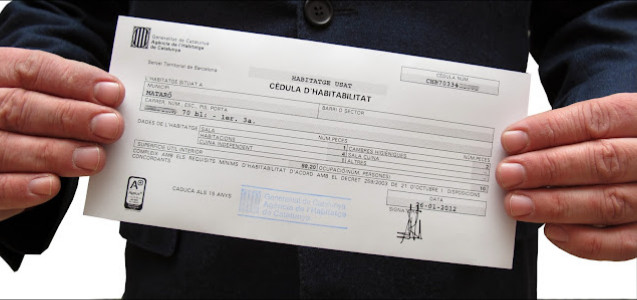 Generalitat de Catalunya
Agència de l'Habitatge
de Catalunya
Servei Territorial de Barcelona
HABITATGE USAT
CÈDULA D'HABITABILITAT
CÈDULA NÚM
L'HABITATGE SITUAT A:
MUNICIPI
MATARÓ
BARRI O SECTOR
CARRER, NÚM., ESC., PIS, PORTA
70 bl: - 1er. 3a.
DADES DE L'HABITATGE
SALA
NÚM PECES
HABITACIONS
CUINA INDEPENDENT
NÚM PECES
CAMBRES HIGIÈNIQUES
SALA CUINA
ALTRES
SUPERFÍCIE ÚTIL INTERIOR
OCUPACIÓ(NÚM. PERSONES)
COMPLEIX AMB ELS REQUISITS MÍNIMS D'HABITABILITAT D'ACORD AMB EL DECRET 259/2003 DE 21 D'OCTUBRE I DISPOSICIONS
CONCORDANTS.
DATA
CADUCA ALS 15 ANYS
Generalitat de Catalunya
Agència de l'Habitatge
de Catalunya